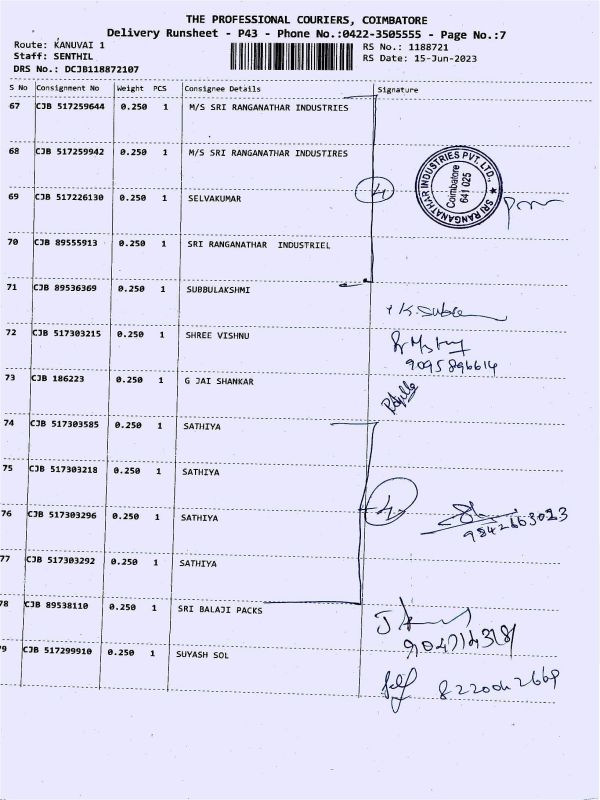 THE PROFESSIONAL COURIERS, COIMBATORE
Delivery Runsheet - P43 - Phone No.:0422-3505555 - Page No.:7
Route: KANUVAI 1 RS No.: 1188721
Staff: SENTHIL RS Date: 15-Jun-2023
DRS No.: DCJB118872107
S No Consignment No Weight PCS Consignee Details Signature
67 CJB 517259644 0.250 1 M/S SRI RANGANATHAR INDUSTRIES
68 CJB 517259942 0.250 1 M/S SRI RANGANATHAR INDUSTIRES
SRI RANGANATHAR INDUSTRIES PVT. LTD.
Coimbatore
641 025
69 CJB 517226130 0.250 1 SELVAKUMAR 4
70 CJB 89555913 0.250 1 SRI RANGANATHAR INDUSTRIEL
71 CJB 89536369 0.250 1 SUBBULAKSHMI
72 CJB 517303215 0.250 1 SHREE VISHNU
9095896614
73 CJB 186223 0.250 1 G JAI SHANKAR
74 CJB 517303585 0.250 1 SATHIYA
75 CJB 517303218 0.250 1 SATHIYA
76 CJB 517303296 0.250 1 SATHIYA 4
9842663023
77 CJB 517303292 0.250 1 SATHIYA
78 CJB 89538110 0.250 1 SRI BALAJI PACKS
79 CJB 517299910 0.250 1 SUYASH SOL